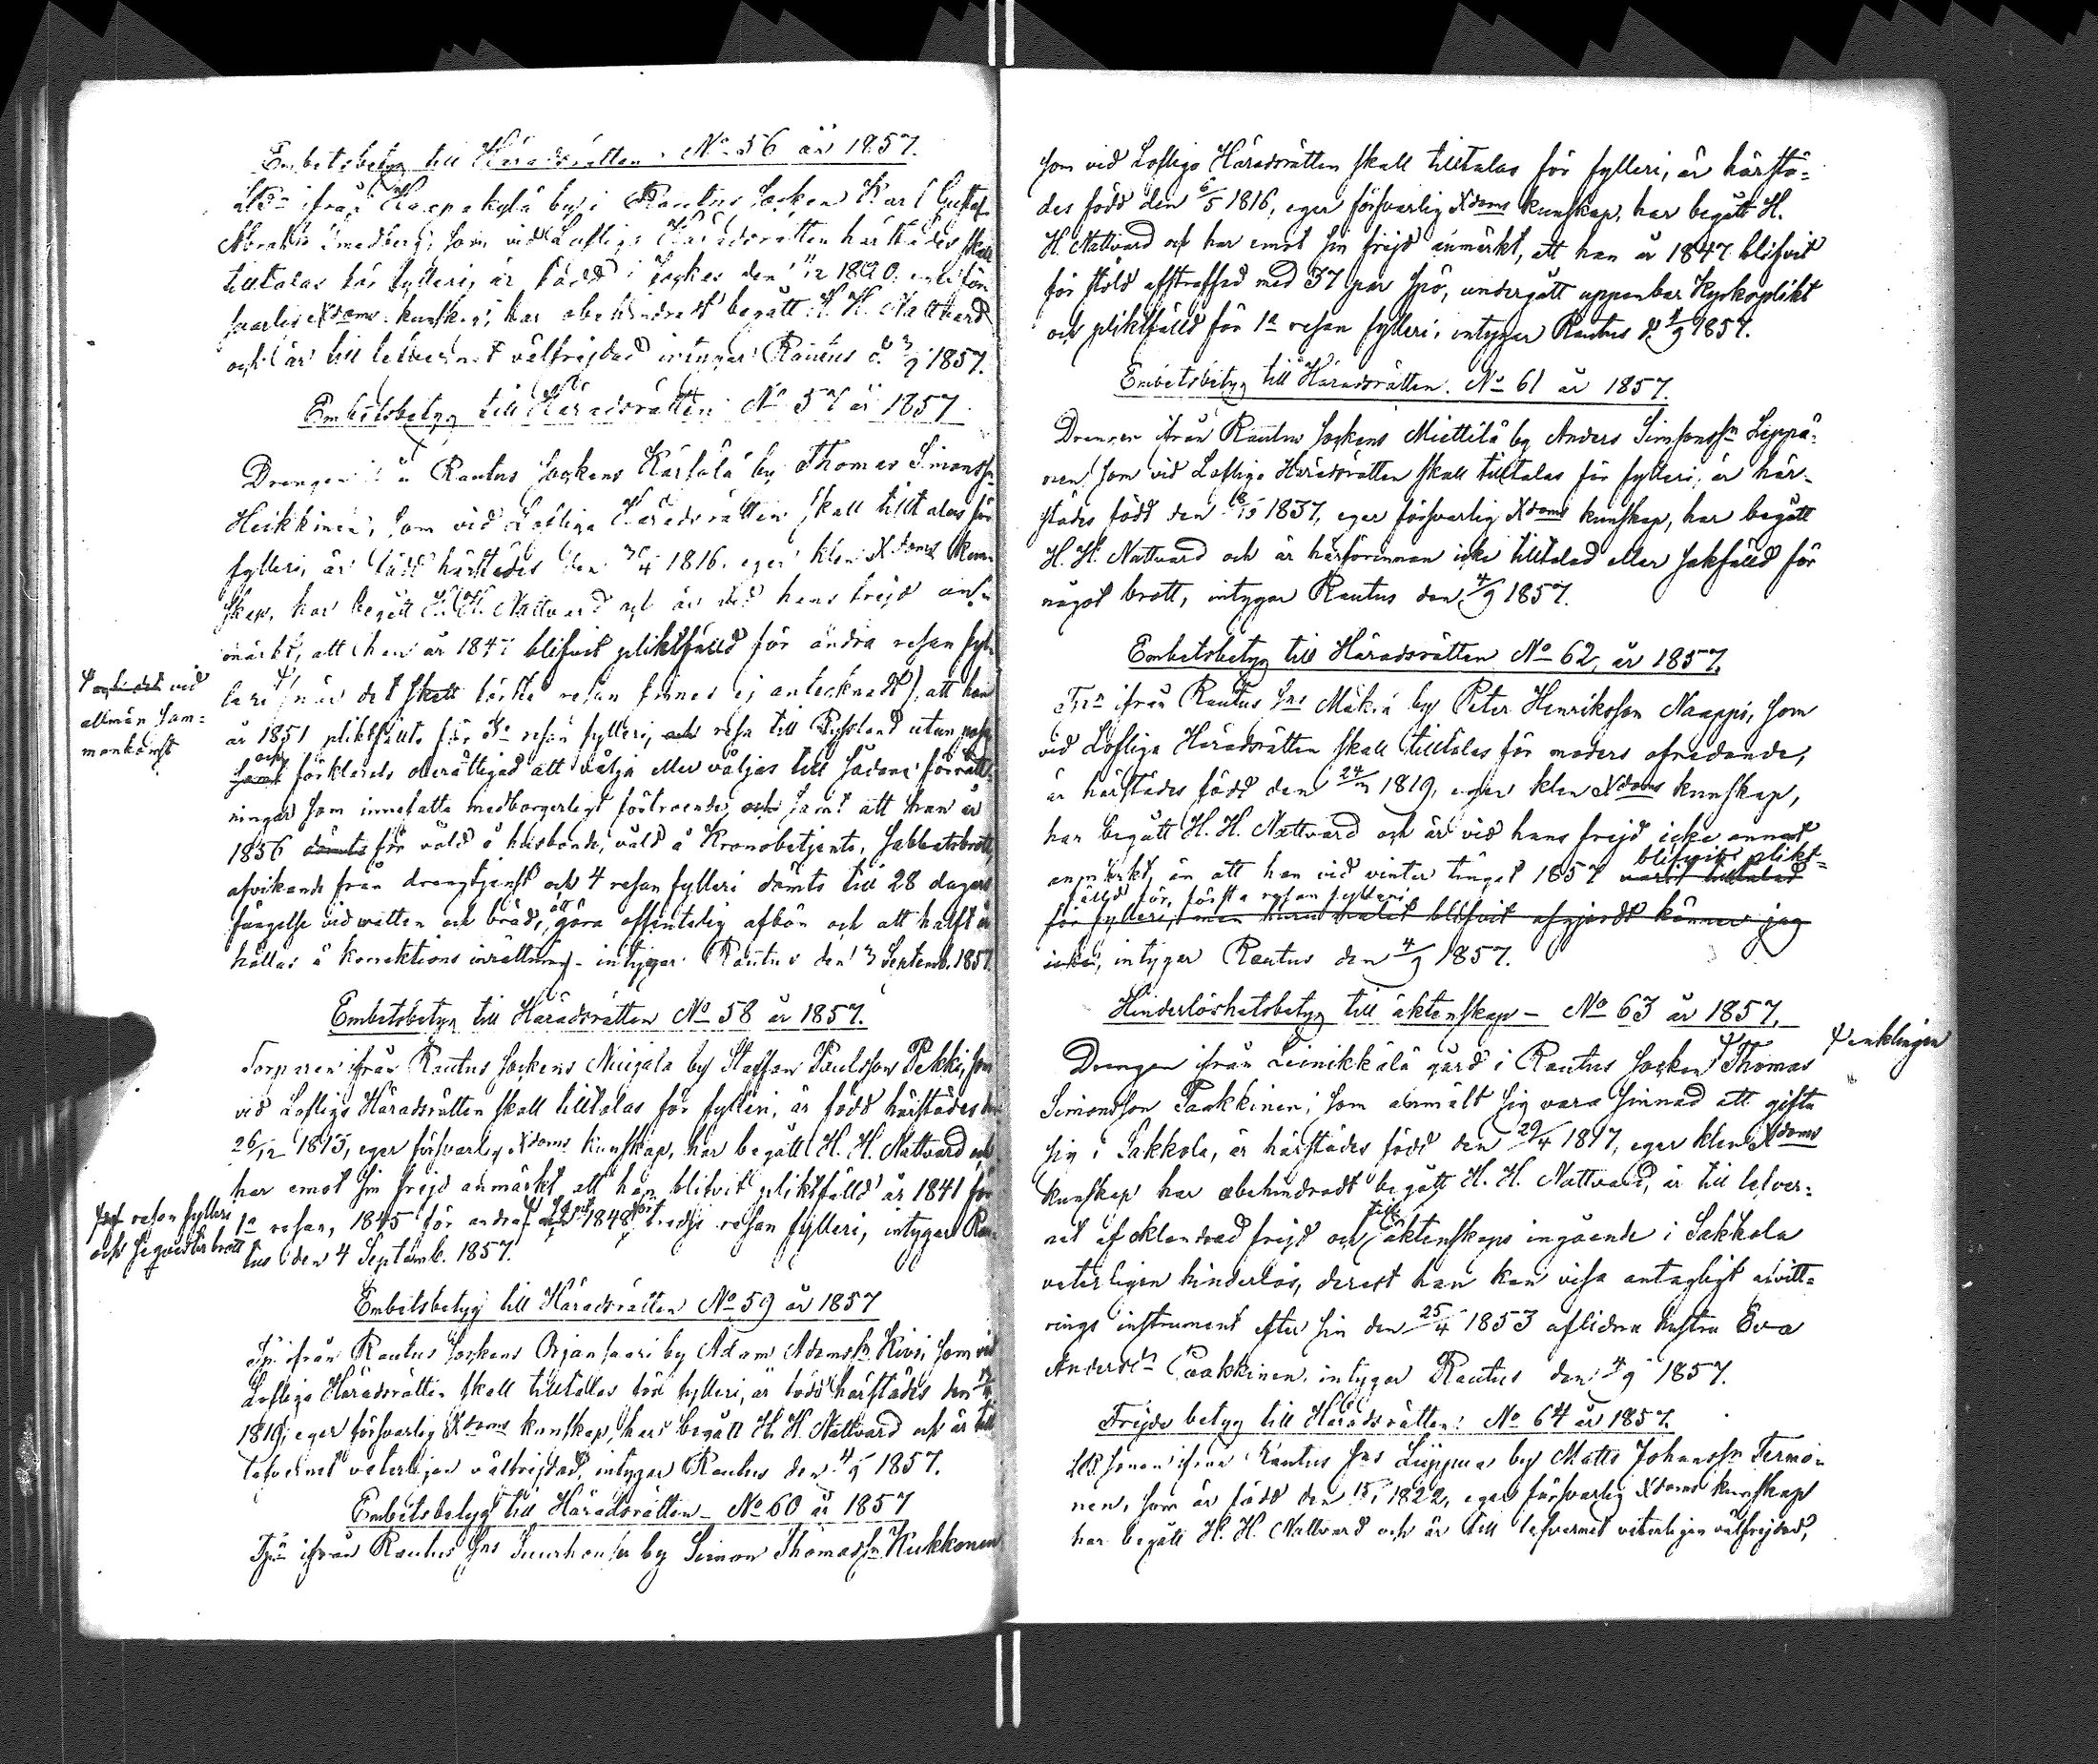 Embetsbetyg till Häradsrätten. No 56 år 1857.
ifrån Haapakylä by i Rautus Socken Karl Gustaf
Abrahs Smedberg, som vid Lofliga Häradsrätten härstädes skall
tilltalas för fylleri, är född i Socken den 1820. för
svarlig Xdoms kunskap, har obehindradt begått H. H. Nattvard
och är till lefvernet välfrejdad intygar Rautus d. 3/9 1857.
Embetsbetyg till Häradsrätten No 57 år 1857.
Drengen ifrån Rautus Sockens Kärsälä by Thomas Simonssn
Heikkinen, som vid Lofliga Häradsrätten skall tilltalas för
fylleri, är född härstädes den 1816. eger klen Xdoms kun-
skap, har begått H. H. Nattvard och är vid hans frejd an-
märkt, att han år 1847 blifvit pliktfälld för andra resan fyl-
leri (när det skett första resan finnes ej antecknadt), att han
år 1851 pliktfällts för 3e resan fylleri, och resa till Ryssland utan pass,
samt och förklarats oberättigad att välja eller väljas till sådane förrätt-
ningar som innefatta medborgerligt förtroende, och samt att han år
1856 dömts för våld å husbonde, våld å Kronobetjente, Sabbatsbrott,
afvikande från drengtjenst och 4 resan fylleri dömts till 28 dagars
fängelse vid watten och bröd, att göra offentelig afbön och att halft år
hållas å korrektions inrättning - intygar Rautus den 3 Septemb. 1857.
vid
allmän sam-
mankomst
Embetsbetyg till Häradsrätten No 58 år 1857.
Torparen ifrån Rautus Sockens Muigala by Staffan Paulsson Pekki, som
vid Lofliga Häradsrätten skall tilltalas för fylleri, är född härstädes den
26/12 1813, eger försvarlig Xdoms kunskap, har begått H. H. Nattvard och
har emot sin frejd anmärkt att han blifvit pliktfälld år 1841 för
1a resan, 1845 för andra samt 1848 för tredje resan fylleri, intygar Rau-
tus den 4 Septemb. 1857.
resan fylleri
och
Embetsbetyg till Häradsrätten No 59 år 1857
ifrån Rautus Sockens Orjansaari by Adam Adamssn Kivi, som vid
Lofliga Häradsrätten skall tilltalas för fylleri, är född härstädes den
1819, eger försvarlig Xdoms kunskap, har begått H. H. Nattvard och är till
lefvernet veterligen välfrejdad, intygar Rautus den 4/9 1857.
Embetsbetyg till Häradsrätten - No 60 år 1857
ifrån Rautus Sns Suurhousu by Simon Thomassn Kukkonen
som vid Lofliga Häradsrätten skall tilltalas för fylleri, är härstä-
des född den 6/5 1816, eger försvarlig Xdoms kunskap, har begått H.
H. Nattvard och har emot sin frejd anmärkt, att han år 1847 blifvit
för stöld afstraffad med 37 par spö, undergått uppenbar Kyrkoplikt
och pliktfälld för 1a resan fylleri, intygar Rautus d. 4/9 1857.
Embetsbetyg till Häradsrätten. No 61 år 1857.
Drengen ifrån Rautus Sockens Miettilä by Anders Simsonssn Leppä-
nen som vid Lofliga Häradsrätten skall tilltalas för fylleri, är här-
städes född den 1837, eger försvarlig Xdoms kunskap, har begått
H. H. Nattvard och är härförinnan icke tilltalad eller sakfälld för
något brott, intygar Rautus den 4/9 1857.
Embetsbetyg till Häradsrätten No 62, år 1857.
ifrån Rautus Sns Mäkrä by Peter Henriksson Naappi, som
vid Lofliga Häradsrätten skall tilltalas för moders ofredande,
är härstädes född den 1819, eger klen Xdoms kunskap,
har begått H. H. Nattvard och är vid hans frejd icke annat
anmärkt, än att han vid vinter tinget 1857 varit tilltalad blifvit plikt-
fälld för första resan fylleri
för fylleri, men huru målet blifvit afgjordt känner jag
icke, intygar Rautus den 4/9 1857.
Hinderlöshetsbetyg till äktenskap - No 63 år 1857.
Drengen ifrån Leinikkälä gård i Rautus Socken Thomas
enklingen
Simonsson Paakkinen, som anmält sig vara sinnad att gifta
sig i Sakkola, är härstädes född den 29/4 1817, eger klen Xdoms
kunskap har obehindradt begått H. H. Nattvard, är till lefver-
net af oklandrad frejd och till äktenskaps ingående i Sakkola
veterligen hinderlös, derest han kan visa antagligt afvitt-
rings instrument efter sin den 25/4 1853 aflidna hustru Eva
Andersdr Paakkinen. intygar Rautus den 4/9 1857.
Frejde betyg till Häradsrätten: No 64 år 1857.
ifrån Rautus Sns Liippua by Matts Johanssn Termo-
nen, som är född den 1822, eger försvarlig Xdoms kunskap
har begått H. H. Nattvard och är till lefvernet veterligen välfrejdad,